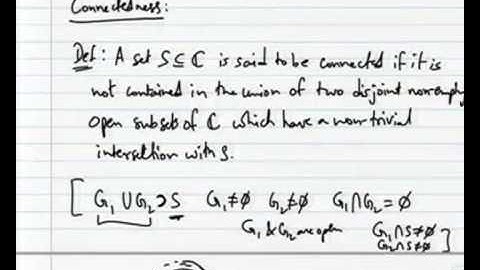 Connectedness:
Def: A set S ⊆ ℂ is said to be connected if it is
not contained in the union of two disjoint nonempty
open subsets of ℂ which have a non trivial
intersection with S.
[ G₁ ∪ G₂ ⊃ S G₁ ≠ ∅ G₂ ≠ ∅ G₁ ∩ G₂ = ∅
G₁ & G₂ are open G₁ ∩ S ≠ ∅
G₂ ∩ S ≠ ∅ ]